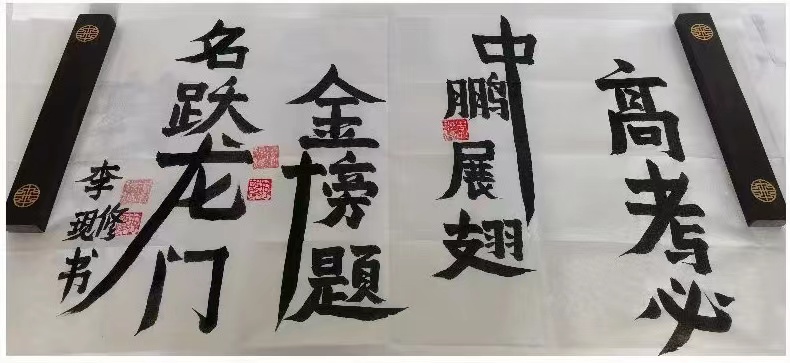 高考必
中鹏展翅
金榜题
名跃龙门
李修现书